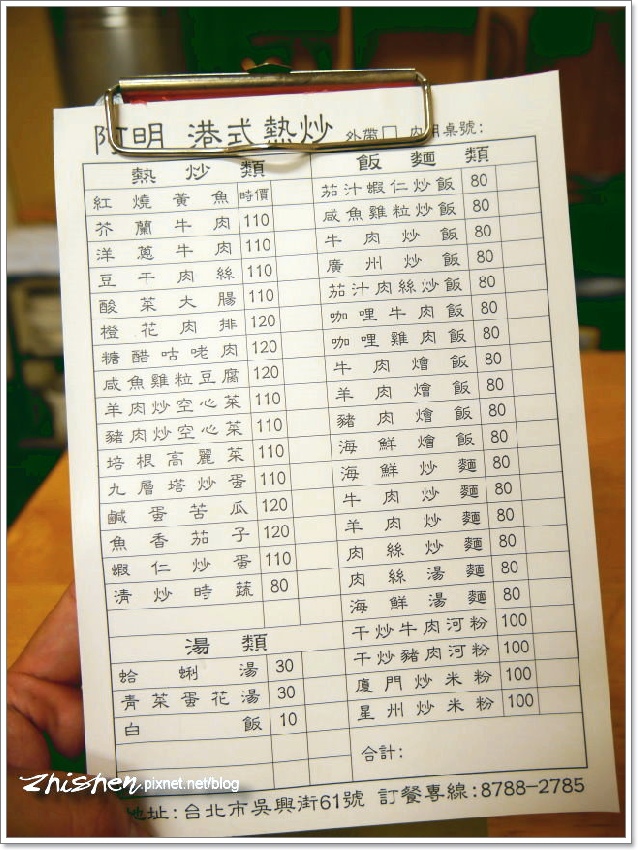 阿明 港式熱炒 外帶□ 內用桌號:
熱炒類
紅燒黃魚 時價
芥蘭牛肉 110
洋蔥牛肉 110
豆干肉絲 110
酸菜大腸 110
橙花肉排 120
糖醋咕咾肉 120
咸魚雞粒豆腐 120
羊肉炒空心菜 110
豬肉炒空心菜 110
培根高麗菜 110
九層塔炒蛋 110
鹹蛋苦瓜 120
魚香茄子 120
蝦仁炒蛋 110
清炒時蔬 80
湯類
蛤蜊湯 30
青菜蛋花湯 30
白飯 10
飯麵類
茄汁蝦仁炒飯 80
咸魚雞粒炒飯 80
牛肉炒飯 80
廣州炒飯 80
茄汁肉絲炒飯 80
咖哩牛肉飯 80
咖哩雞肉飯 80
牛肉燴飯 80
羊肉燴飯 80
豬肉燴飯 80
海鮮燴飯 80
海鮮炒麵 80
牛肉炒麵 80
羊肉炒麵 80
肉絲炒麵 80
肉絲湯麵 80
海鮮湯麵 80
干炒牛肉河粉 100
干炒豬肉河粉 100
廈門炒米粉 100
星州炒米粉 100
合計:
地址:台北市吳興街61號 訂餐專線:8788-2785
zhishen.pixnet.net/blog